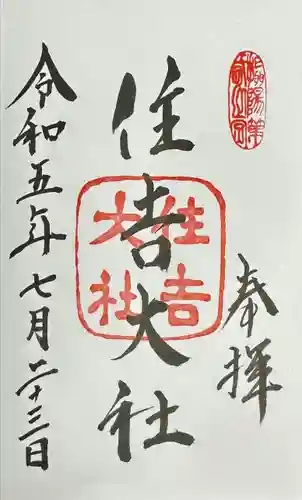 奉拝
住吉大社
令和五年七月二十三日
住吉
大社